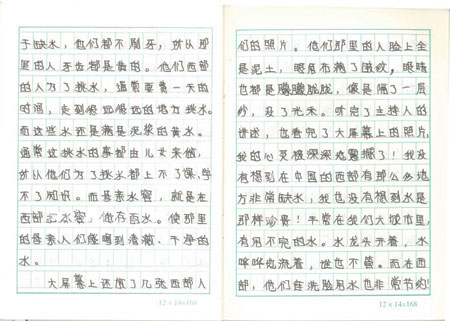 于缺水，他们都不刷牙，所以那
里的人牙齿都是黄的。他们西部
的人为了挑水，通常要费一天的
时间，走到很远很远的地方挑水。
而这些水还是满是泥浆的黄水。
通常这挑水的事都由儿女来做，
所以他们为了挑水都上不了课，学
不了知识。而母亲水窖，就是在
西部，储存雨水。使那里
的母亲人们能喝到清澈、干净的
水。
大屏幕上还放了几张西部人
12×14=168
们的照片。他们那里的人脸上全
是泥土，眼角布满了皱纹，眼睛
也都是朦朦胧胧，像是隔了一层
纱，没了光采。听完了主持人的
讲述，也看完了大屏幕上的照片，
我的心灵被深深地震撼了！我没
有想到在中国的西部有那么多地
方非常缺水，我也没有想到水是
那样珍贵！平常在我们大城市里，
有用不完的水。水龙头开着，水
哗哗地流着，谁也不管。而在西
部，他们连洗脸用水也非常节约！
12×14=168